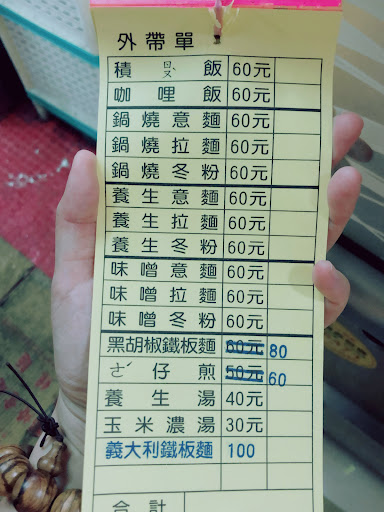 外帶單
積ㄖㄡˋ飯 60元
咖哩飯 60元
鍋燒意麵 60元
鍋燒拉麵 60元
鍋燒冬粉 60元
養生意麵 60元
養生拉麵 60元
養生冬粉 60元
味噌意麵 60元
味噌拉麵 60元
味噌冬粉 60元
黑胡椒鐵板麵 60元 80
ㄜˊ仔煎 50元 60
養生湯 40元
玉米濃湯 30元
義大利鐵板麵 100
合計